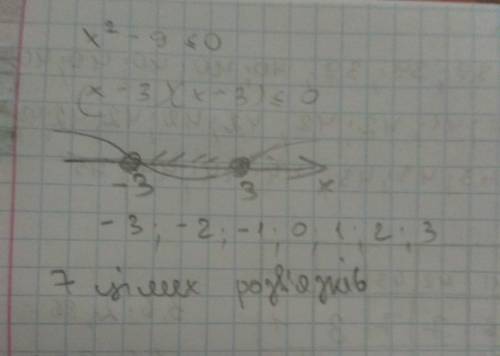 x² - 9 ≤ 0
(x - 3)(x - 3) ≤ 0
-3 3 x
-3; -2; -1; 0; 1; 2; 3
7 цілих розв'язків